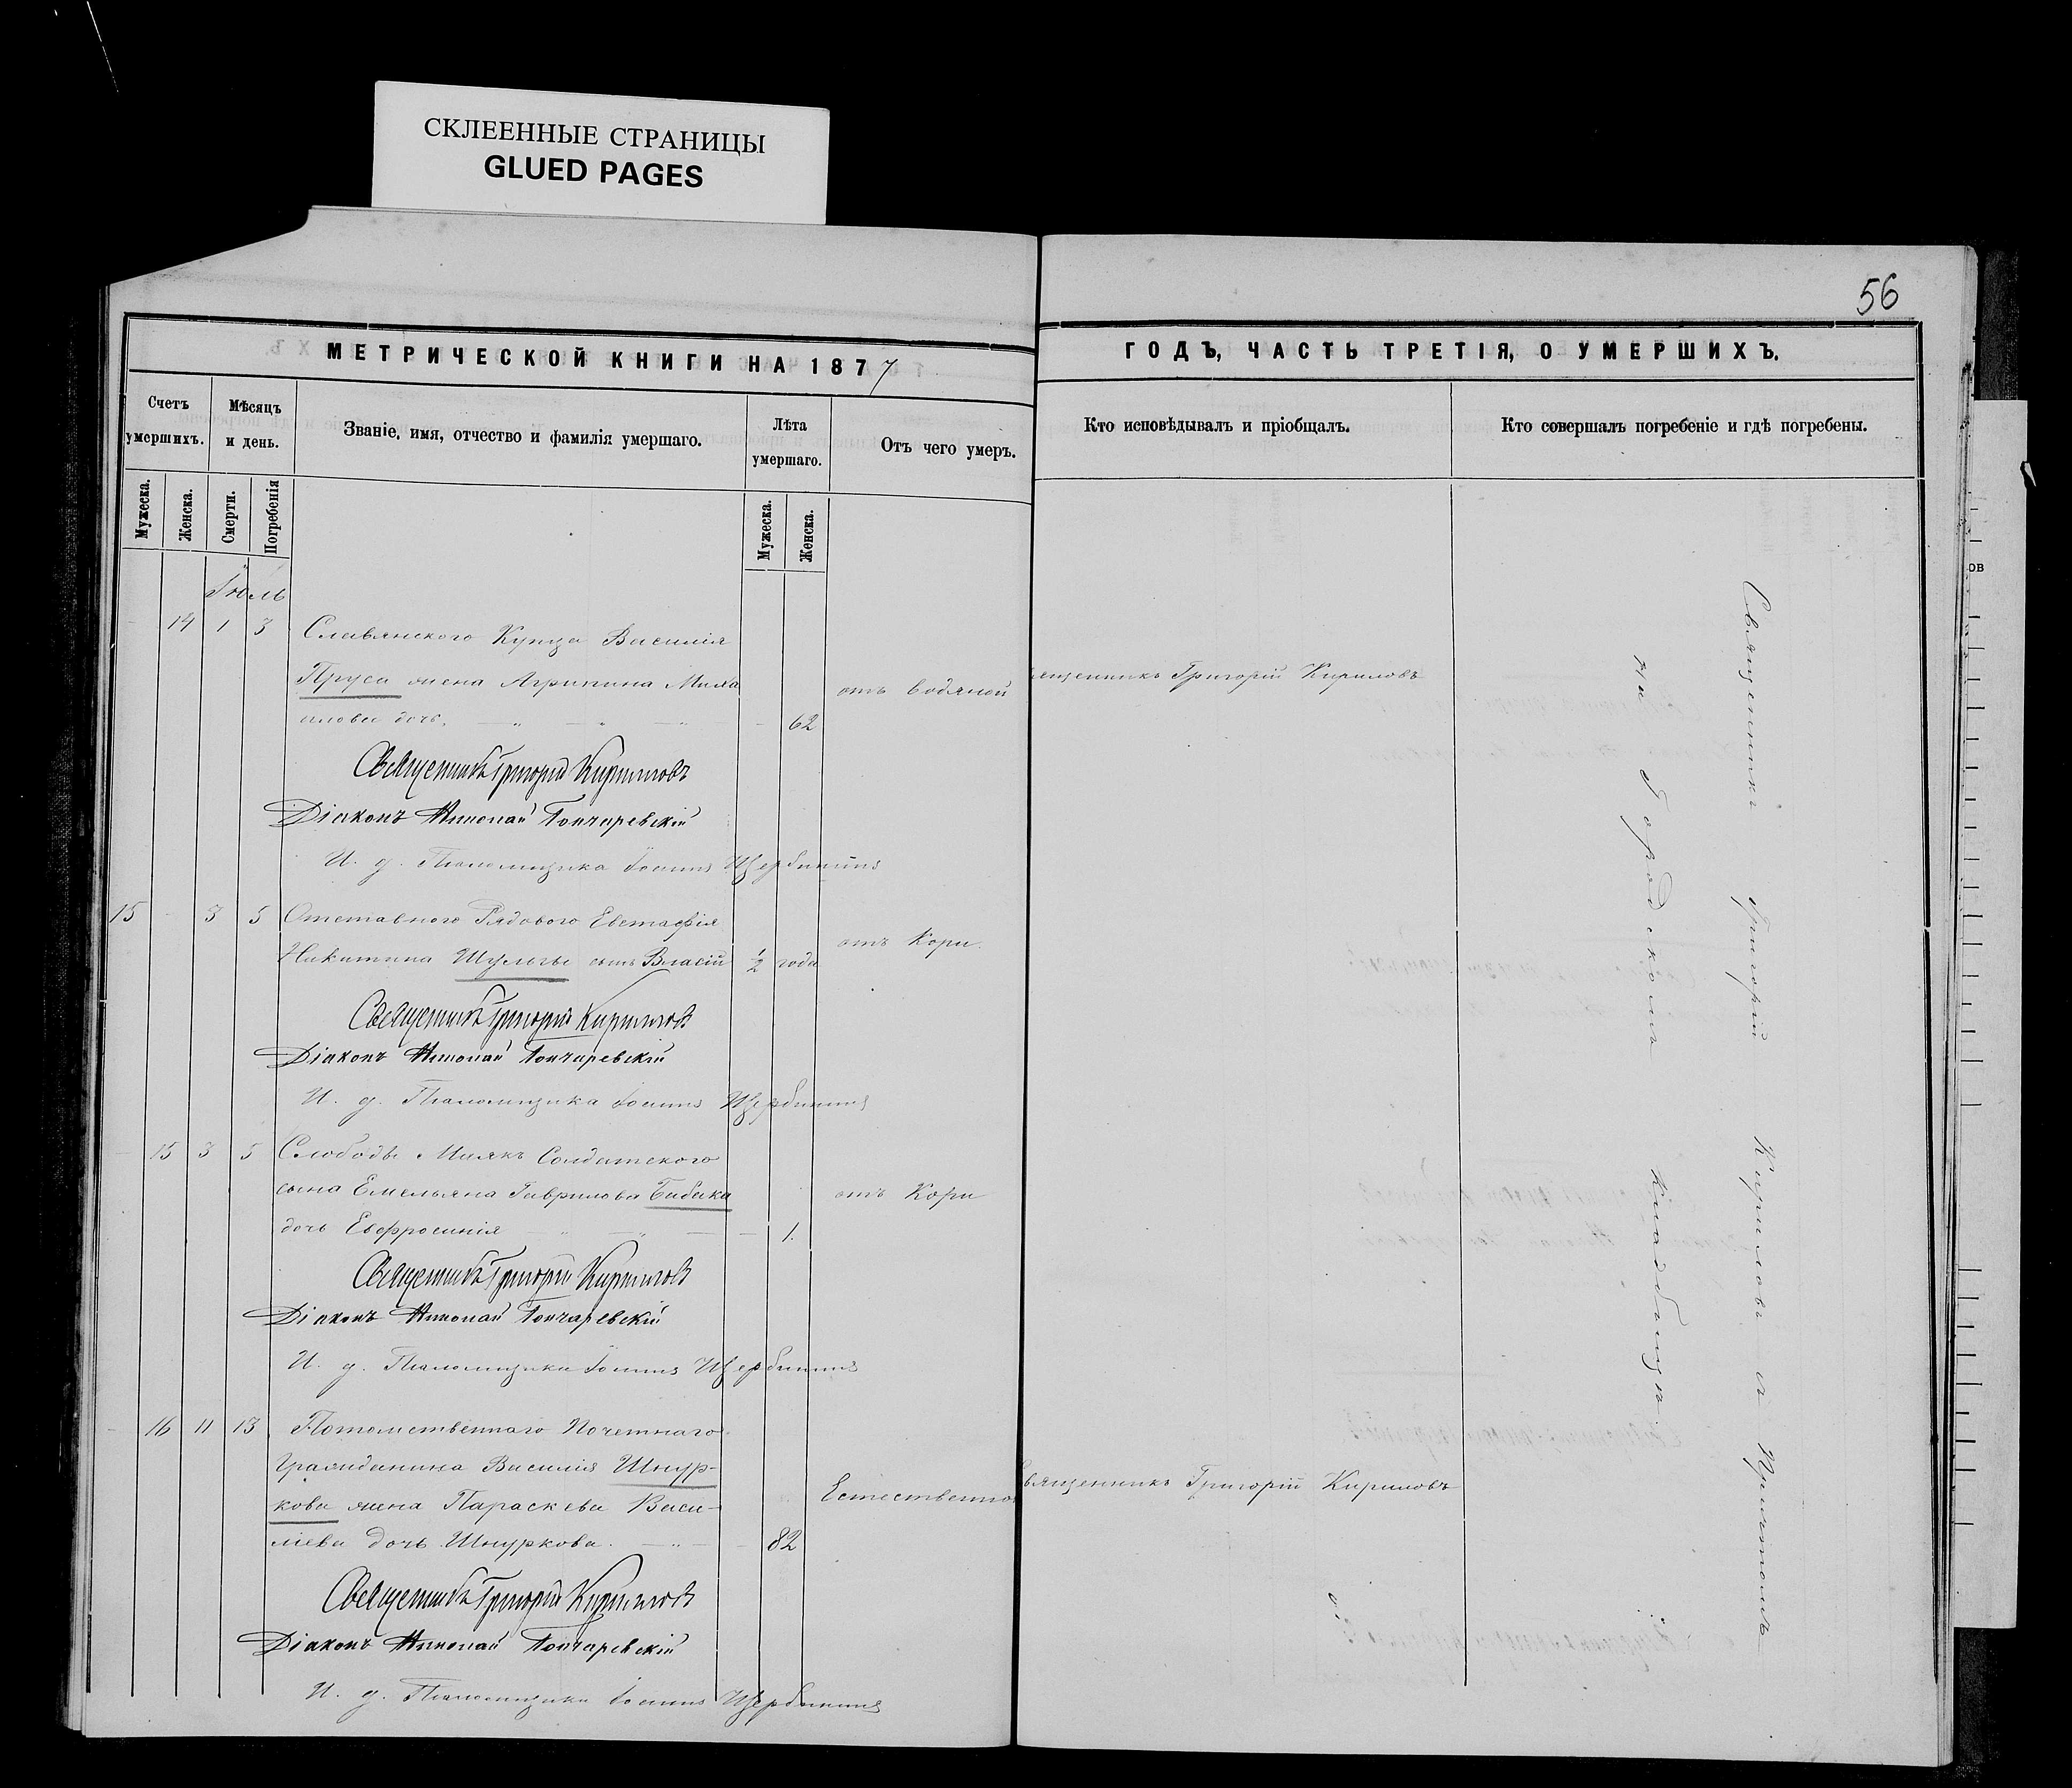 СКЛЕЕННЫЕ СТРАНИЦЫ
GLUED PAGES
56
МЕТРИЧЕСКОЙ КНИГИ НА 1877
ГОДЪ, ЧАСТЬ ТРЕТІЯ, О УМЕРШИХЪ.
Счетъ умершихъ.
Мѣсяцъ и день.
Званіе, имя, отчество и фамилія умершаго.
Лѣта умершаго.
Отъ чего умеръ.
Кто исповѣдывалъ и пріобщалъ.
Кто совершалъ погребеніе и гдѣ погребены.
Мужеска.
Женска.
Смерти.
Погребенія
Мужеска.
Женска.
Іюль
14 1 3 Славянского Купца Василія
Пруса жена Агрипина Миха
илова дочь. 62
отъ водяной
Священникъ Григорій Кириловъ
Священникъ Григорій Кирилловъ
Діаконъ Николай Гончаревскій
И. д. Псаломщика Іоаннъ Щербининъ
15 3 5 Отставного Рядового Евстафія
Никитина Шульги сынъ Власій 1/2 года
отъ Кори.
Священникъ Григорій Кирилловъ
Діаконъ Николай Гончаревскій
И. д. Псаломщика Іоаннъ Щербининъ
15 3 5 Слободы Маякъ Солдатского
сына Емельяна Гаврилова Бабака
дочь Евфросинія 1.
отъ Кори
Священникъ Григорій Кирилловъ
Діаконъ Николай Гончаревскій
И. д. Псаломщика Іоаннъ Щербининъ
16 11 13 Потомственнаго Почетнаго
Гражданина Василія Шнур-
кова жена Параскева Васи-
лієва дочь Шнуркова. 82
Естественно
Священникъ Григорій Кириловъ
Священникъ Григорій Кирилловъ
Діаконъ Николай Гончаревскій
И. д. Псаломщика Іоаннъ Щербининъ
Священникъ Григорій Кириловъ съ Причтомъ
на Городскомъ Кладбищѣ.